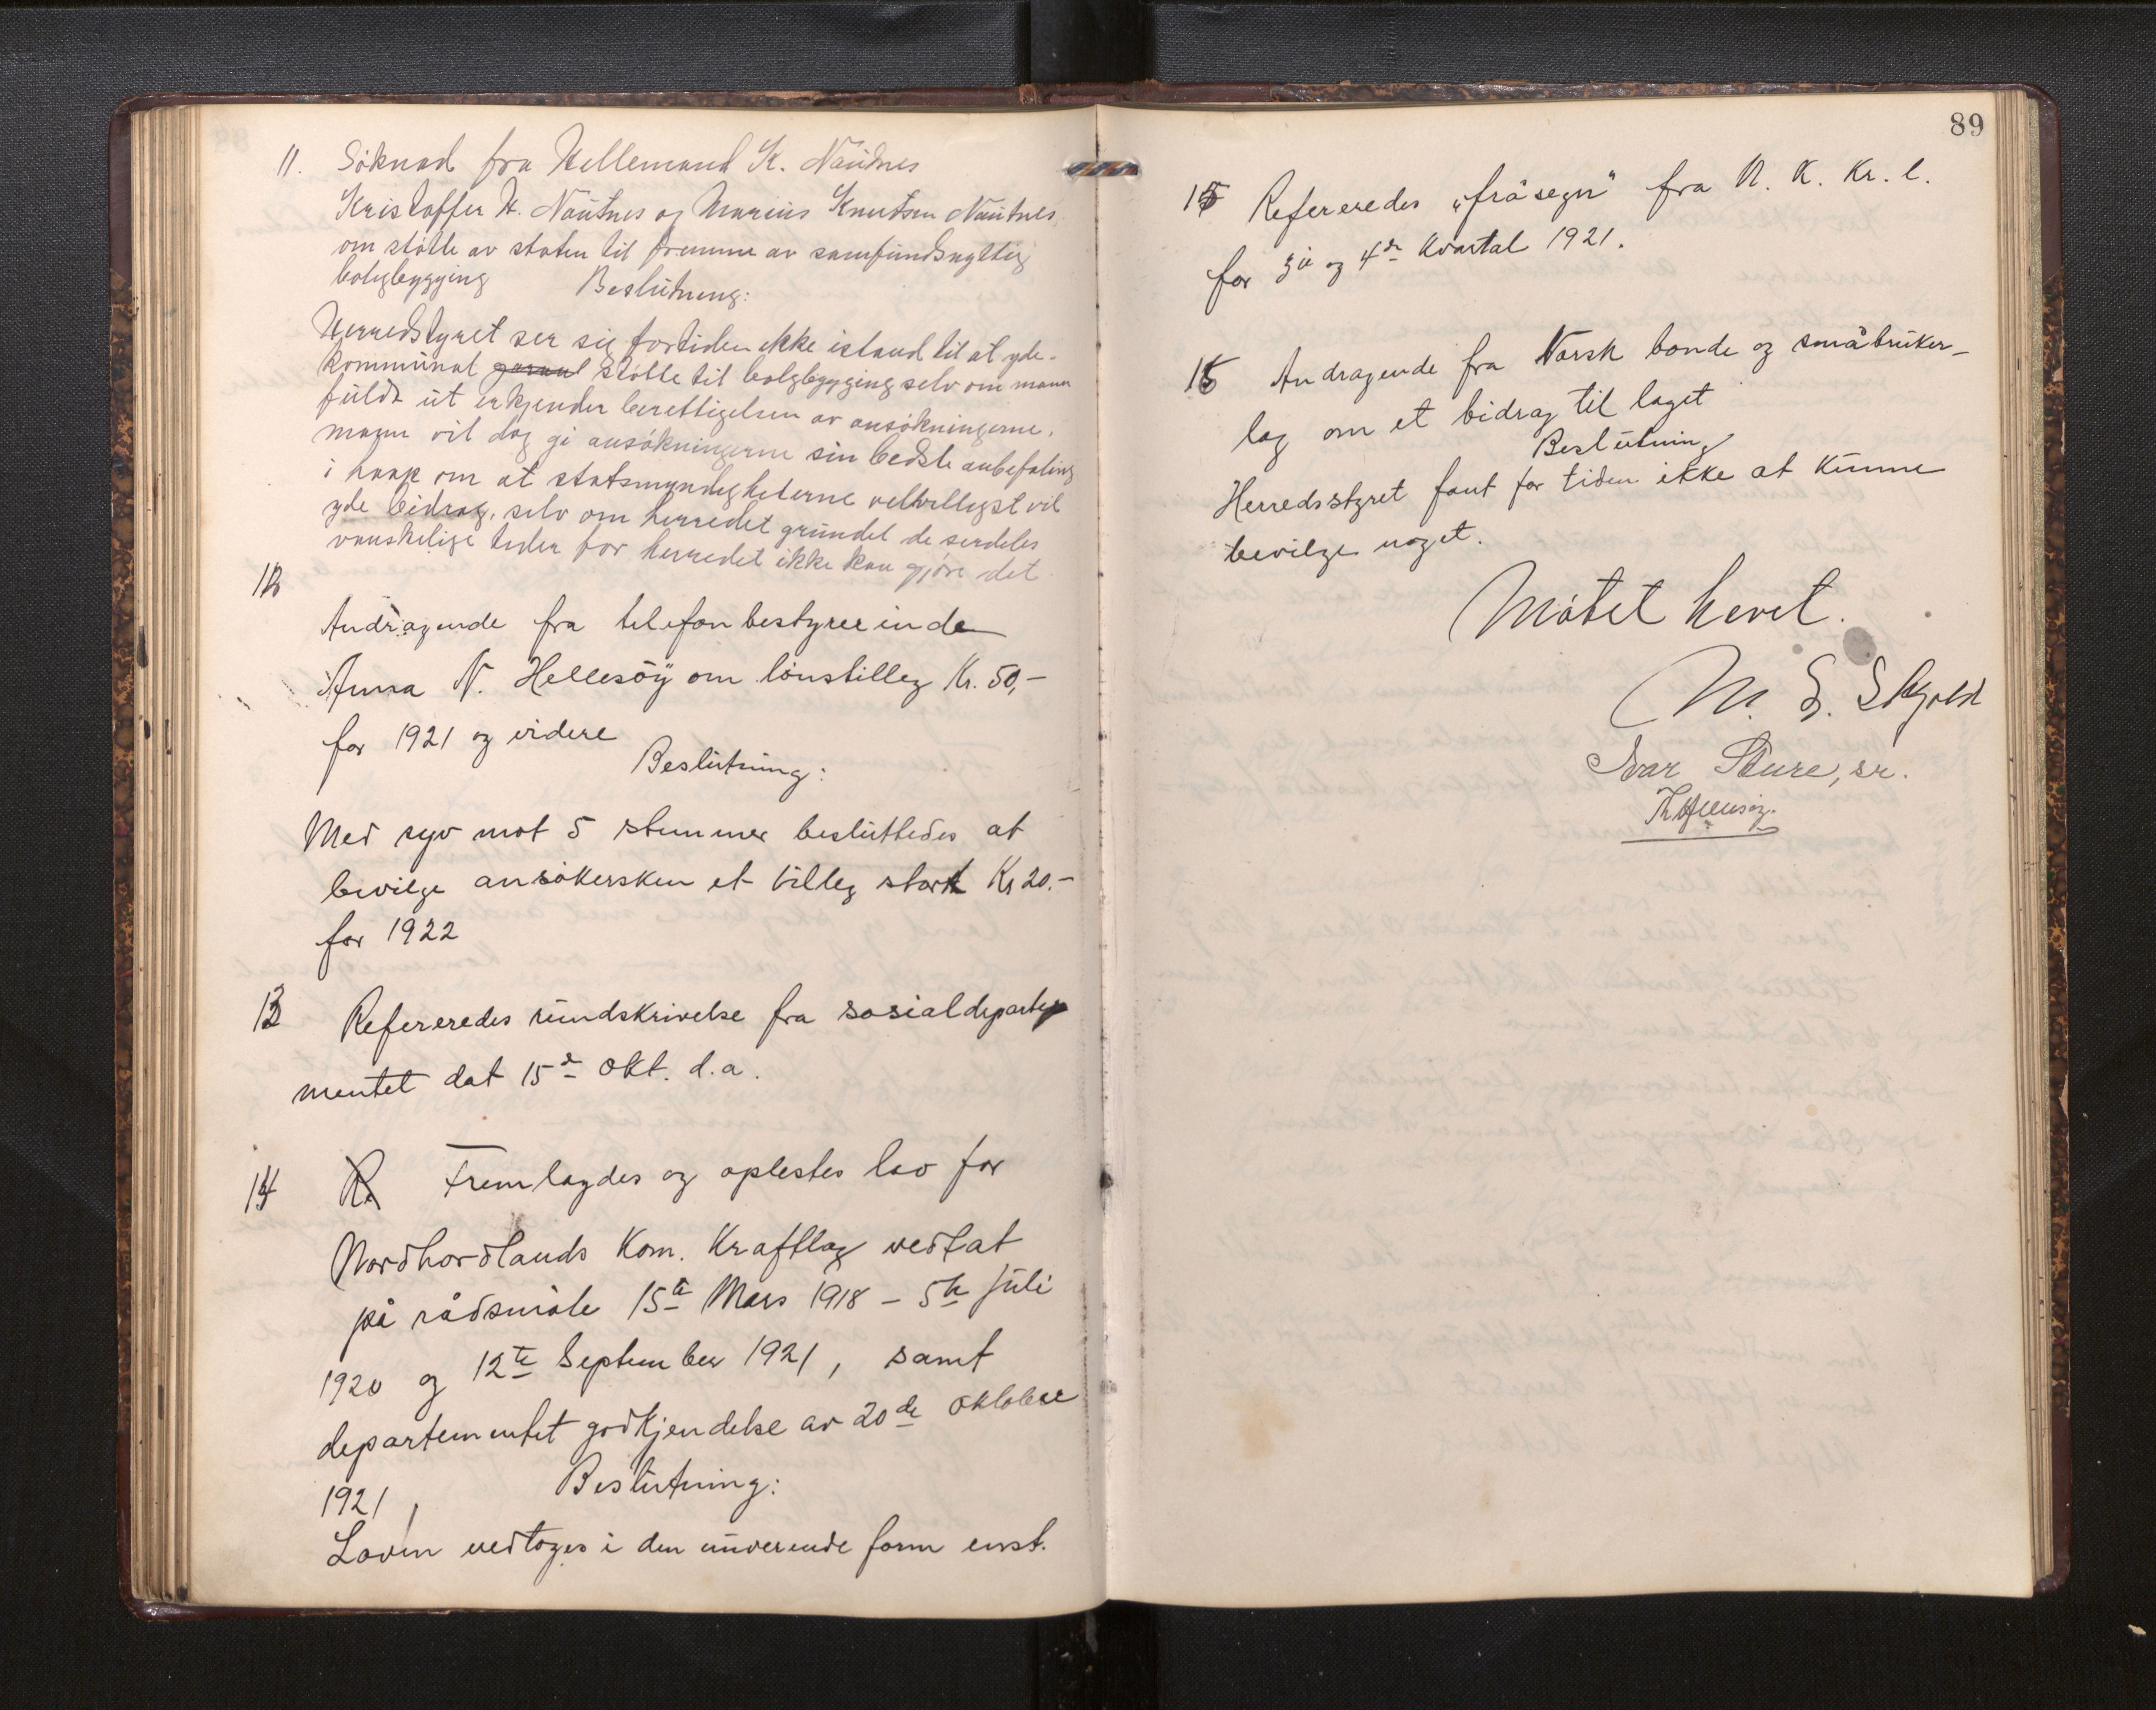 11. Söknad fra Hellemand K. Nautnes
Kristoffer H. Nautnes og Marius Knutsen Nautnes
om stötte av staten til fremme av samfundsnyttig
boligbygging Beslutning:
Herredstyret ser sig fortiden ikke istand til at yde
kommunal garant stötte til boligbygging selv om mann
fuldt ut erkjender berettigelsen av ansökningerne.
mann vil dog gi ansökningerne sin bedste anbefaling
i haap om at statsmyndigheterne velvilligst vil
yde bidrag, selv om herredet grundet de serdeles
vanskelige tider for herredet ikke kan gjöre det.
12
Andragende fra telefonbestyrerinde
Anna N. Hellesöy om lönstilleg Kr. 50,-
for 1921 og videre
Beslutning:
Med syv mot 5 stemmer besluttedes at
bevilge ansökersken et tilleg stort Kr 20.-
for 1922
13 Refereredes rundskrivelse fra sosialdeparte
mentet dat 15de Okt. d.a.
14 R. Fremlagdes og oplestes lov for
Nordhordlands Kom. Kraftlag vedtat
på rådsmöte 15te Mars 1918 - 5te juli
1920 og 12te September 1921, samt
departementet godkjendelse av 20de oktober
1921, Beslutning:
Loven vedtoges i den nuverende form enst.
89
15 Refereredes "fråsegn" fra N. K. Kr. l.
for 3je og 4de kvartal 1921.
16 Andragende fra Norsk bonde og småbruker-
lag om et bidrag til laget
Beslutning
Herredsstyret fant for tiden ikke at kunne
bevilge noget.
Mötet hevet.
M. S. Skjold
Ivar Sture, sr.